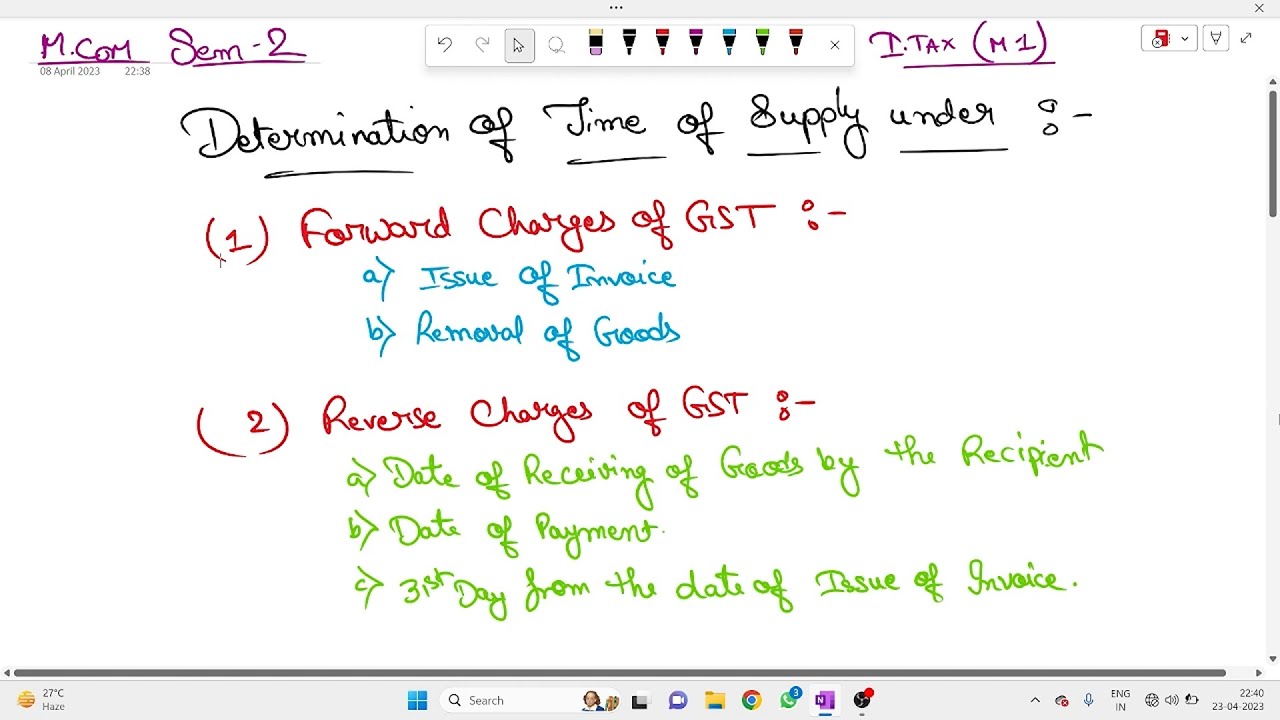 M.COM Sem-2
I.TAX (M1)
08 April 2023 22:38
Determination of Time of Supply under :-
(1) Forward Charges of GST :-
a) Issue of Invoice
b) Removal of Goods
(2) Reverse Charges of GST :-
a) Date of Receiving of Goods by the Recipient
b) Date of Payment.
c) 31st Day from the date of Issue of Invoice.
27°C
Haze
Search
3
ENG
IN
22:40
23-04-2023